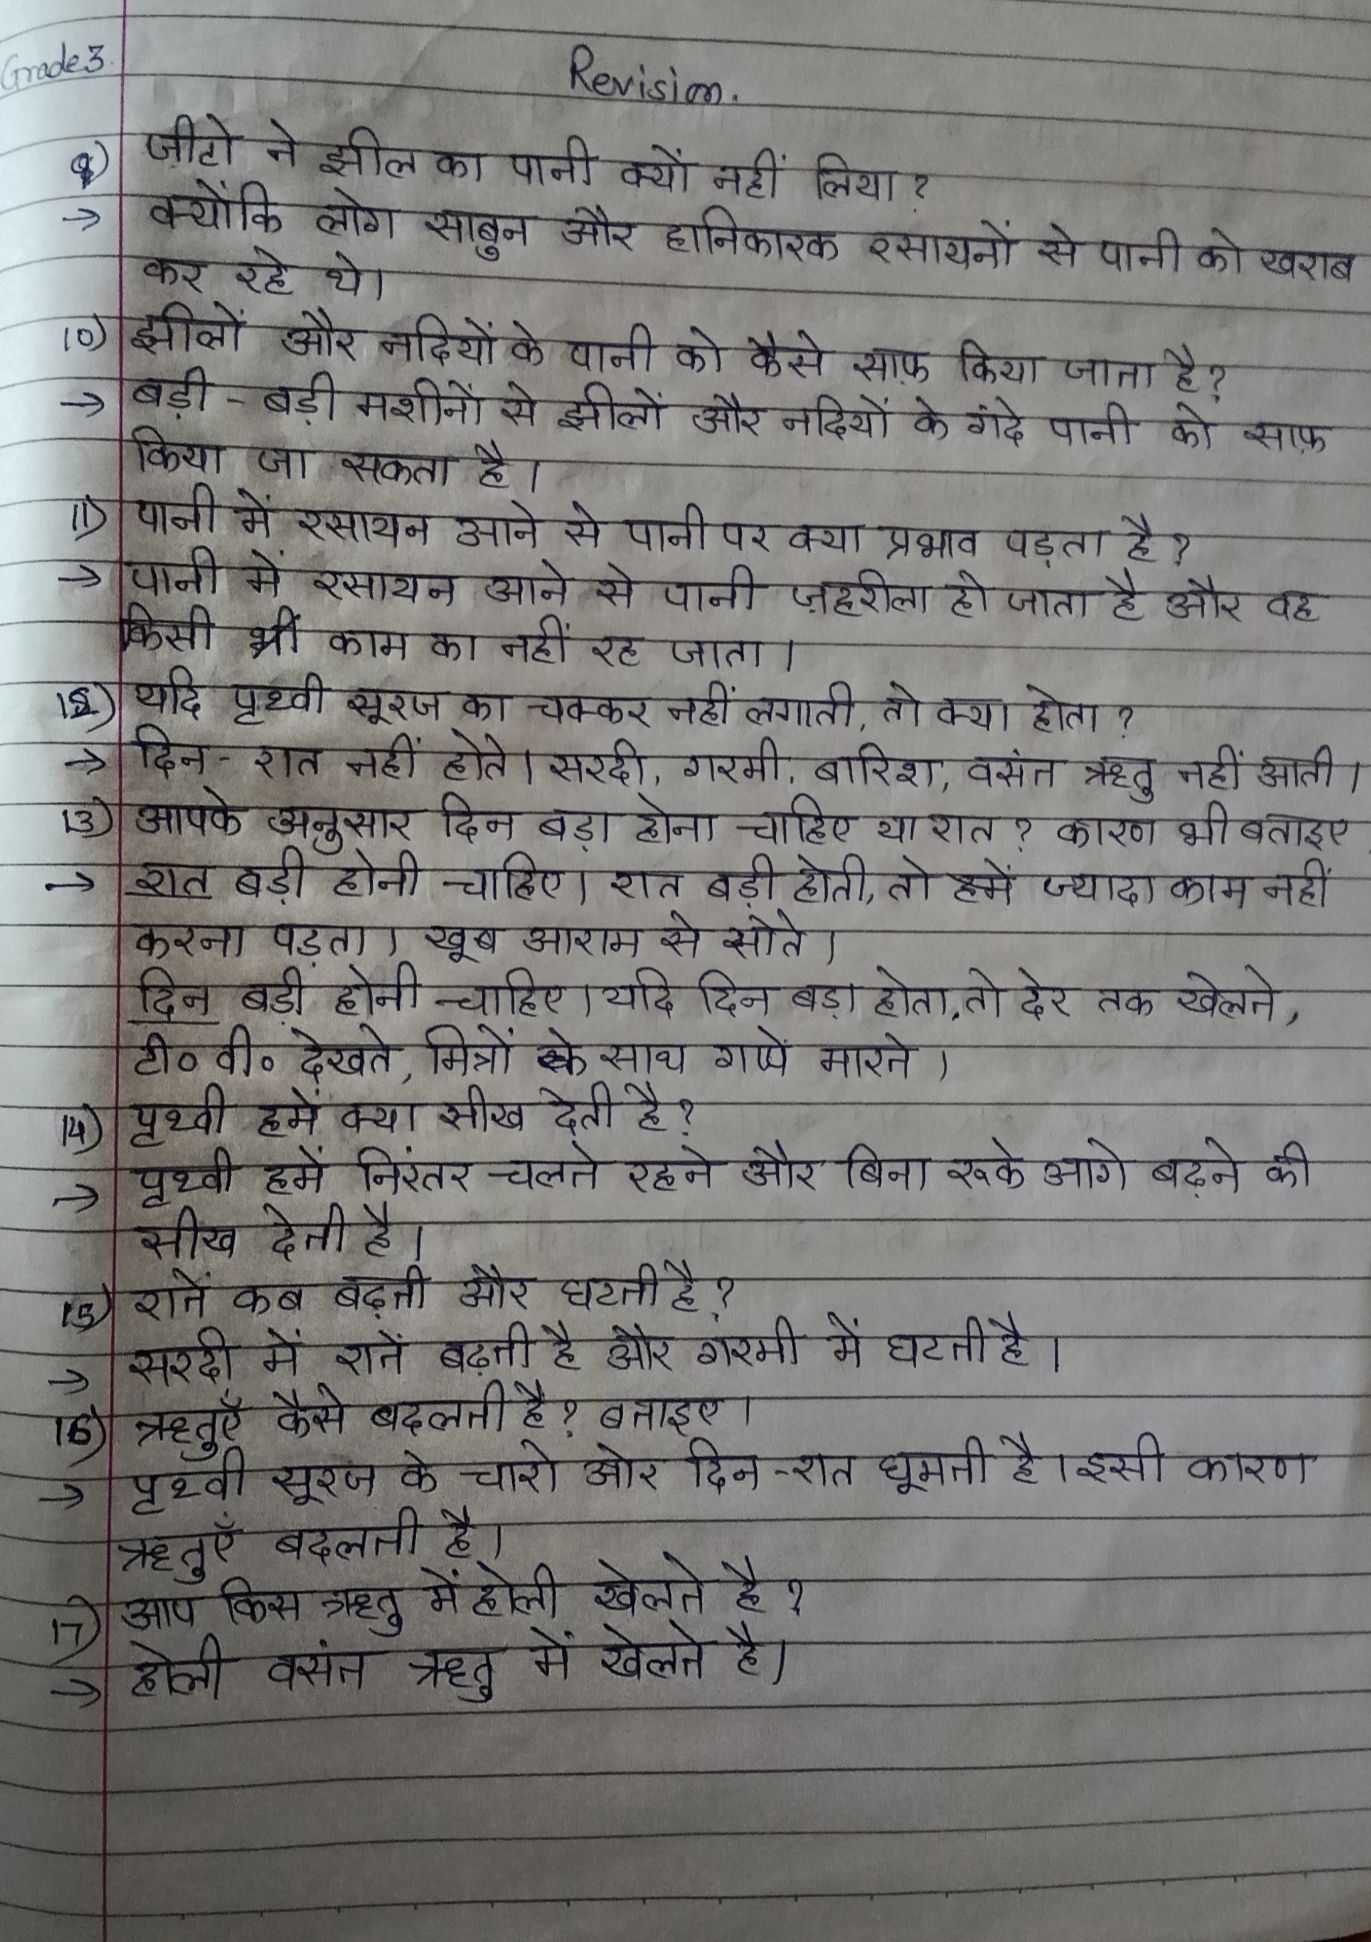 Grade 3.
Revision.
9) जीटो ने झील का पानी क्यों नहीं लिया?
→ क्योंकि लोग साबुन और हानिकारक रसायनों से पानी को खराब
कर रहे थे।
10) झीलों और नदियों के पानी को कैसे साफ़ किया जाता है?
→ बड़ी - बड़ी मशीनों से झीलों और नदियों के गंदे पानी को साफ़
किया जा सकता है।
11) पानी में रसायन आने से पानी पर क्या प्रभाव पड़ता है?
→ पानी में रसायन आने से पानी ज़हरीला हो जाता है और वह
किसी भी काम का नहीं रह जाता।
12) यदि पृथ्वी सूरज का चक्कर नहीं लगाती, तो क्या होता?
→ दिन - रात नहीं होते। सरदी, गरमी, बारिश, वसंत ऋतु नहीं आती।
13) आपके अनुसार दिन बड़ा होना चाहिए या रात? कारण भी बताइए
→ रात बड़ी होनी चाहिए। रात बड़ी होती, तो हमें ज्यादा काम नहीं
करना पड़ता। खूब आराम से सोते।
दिन बड़ी होनी चाहिए। यदि दिन बड़ा होता, तो देर तक खेलते,
टी० वी० देखते, मित्रों के साथ गप्पे मारते।
14) पृथ्वी हमें क्या सीख देती है?
→ पृथ्वी हमें निरंतर चलते रहने और बिना रुके आगे बढ़ने की
सीख देती है।
15) रातें कब बढ़ती और घटती है?
→ सरदी में रातें बढ़ती है और गरमी में घटती है।
16) ऋतुएँ कैसे बदलती है? बताइए।
→ पृथ्वी सूरज के चारो ओर दिन - रात घूमती है। इसी कारण
ऋतुएँ बदलती है।
17) आप किस ऋतु में होली खेलते है?
→ होली वसंत ऋतु में खेलते है।